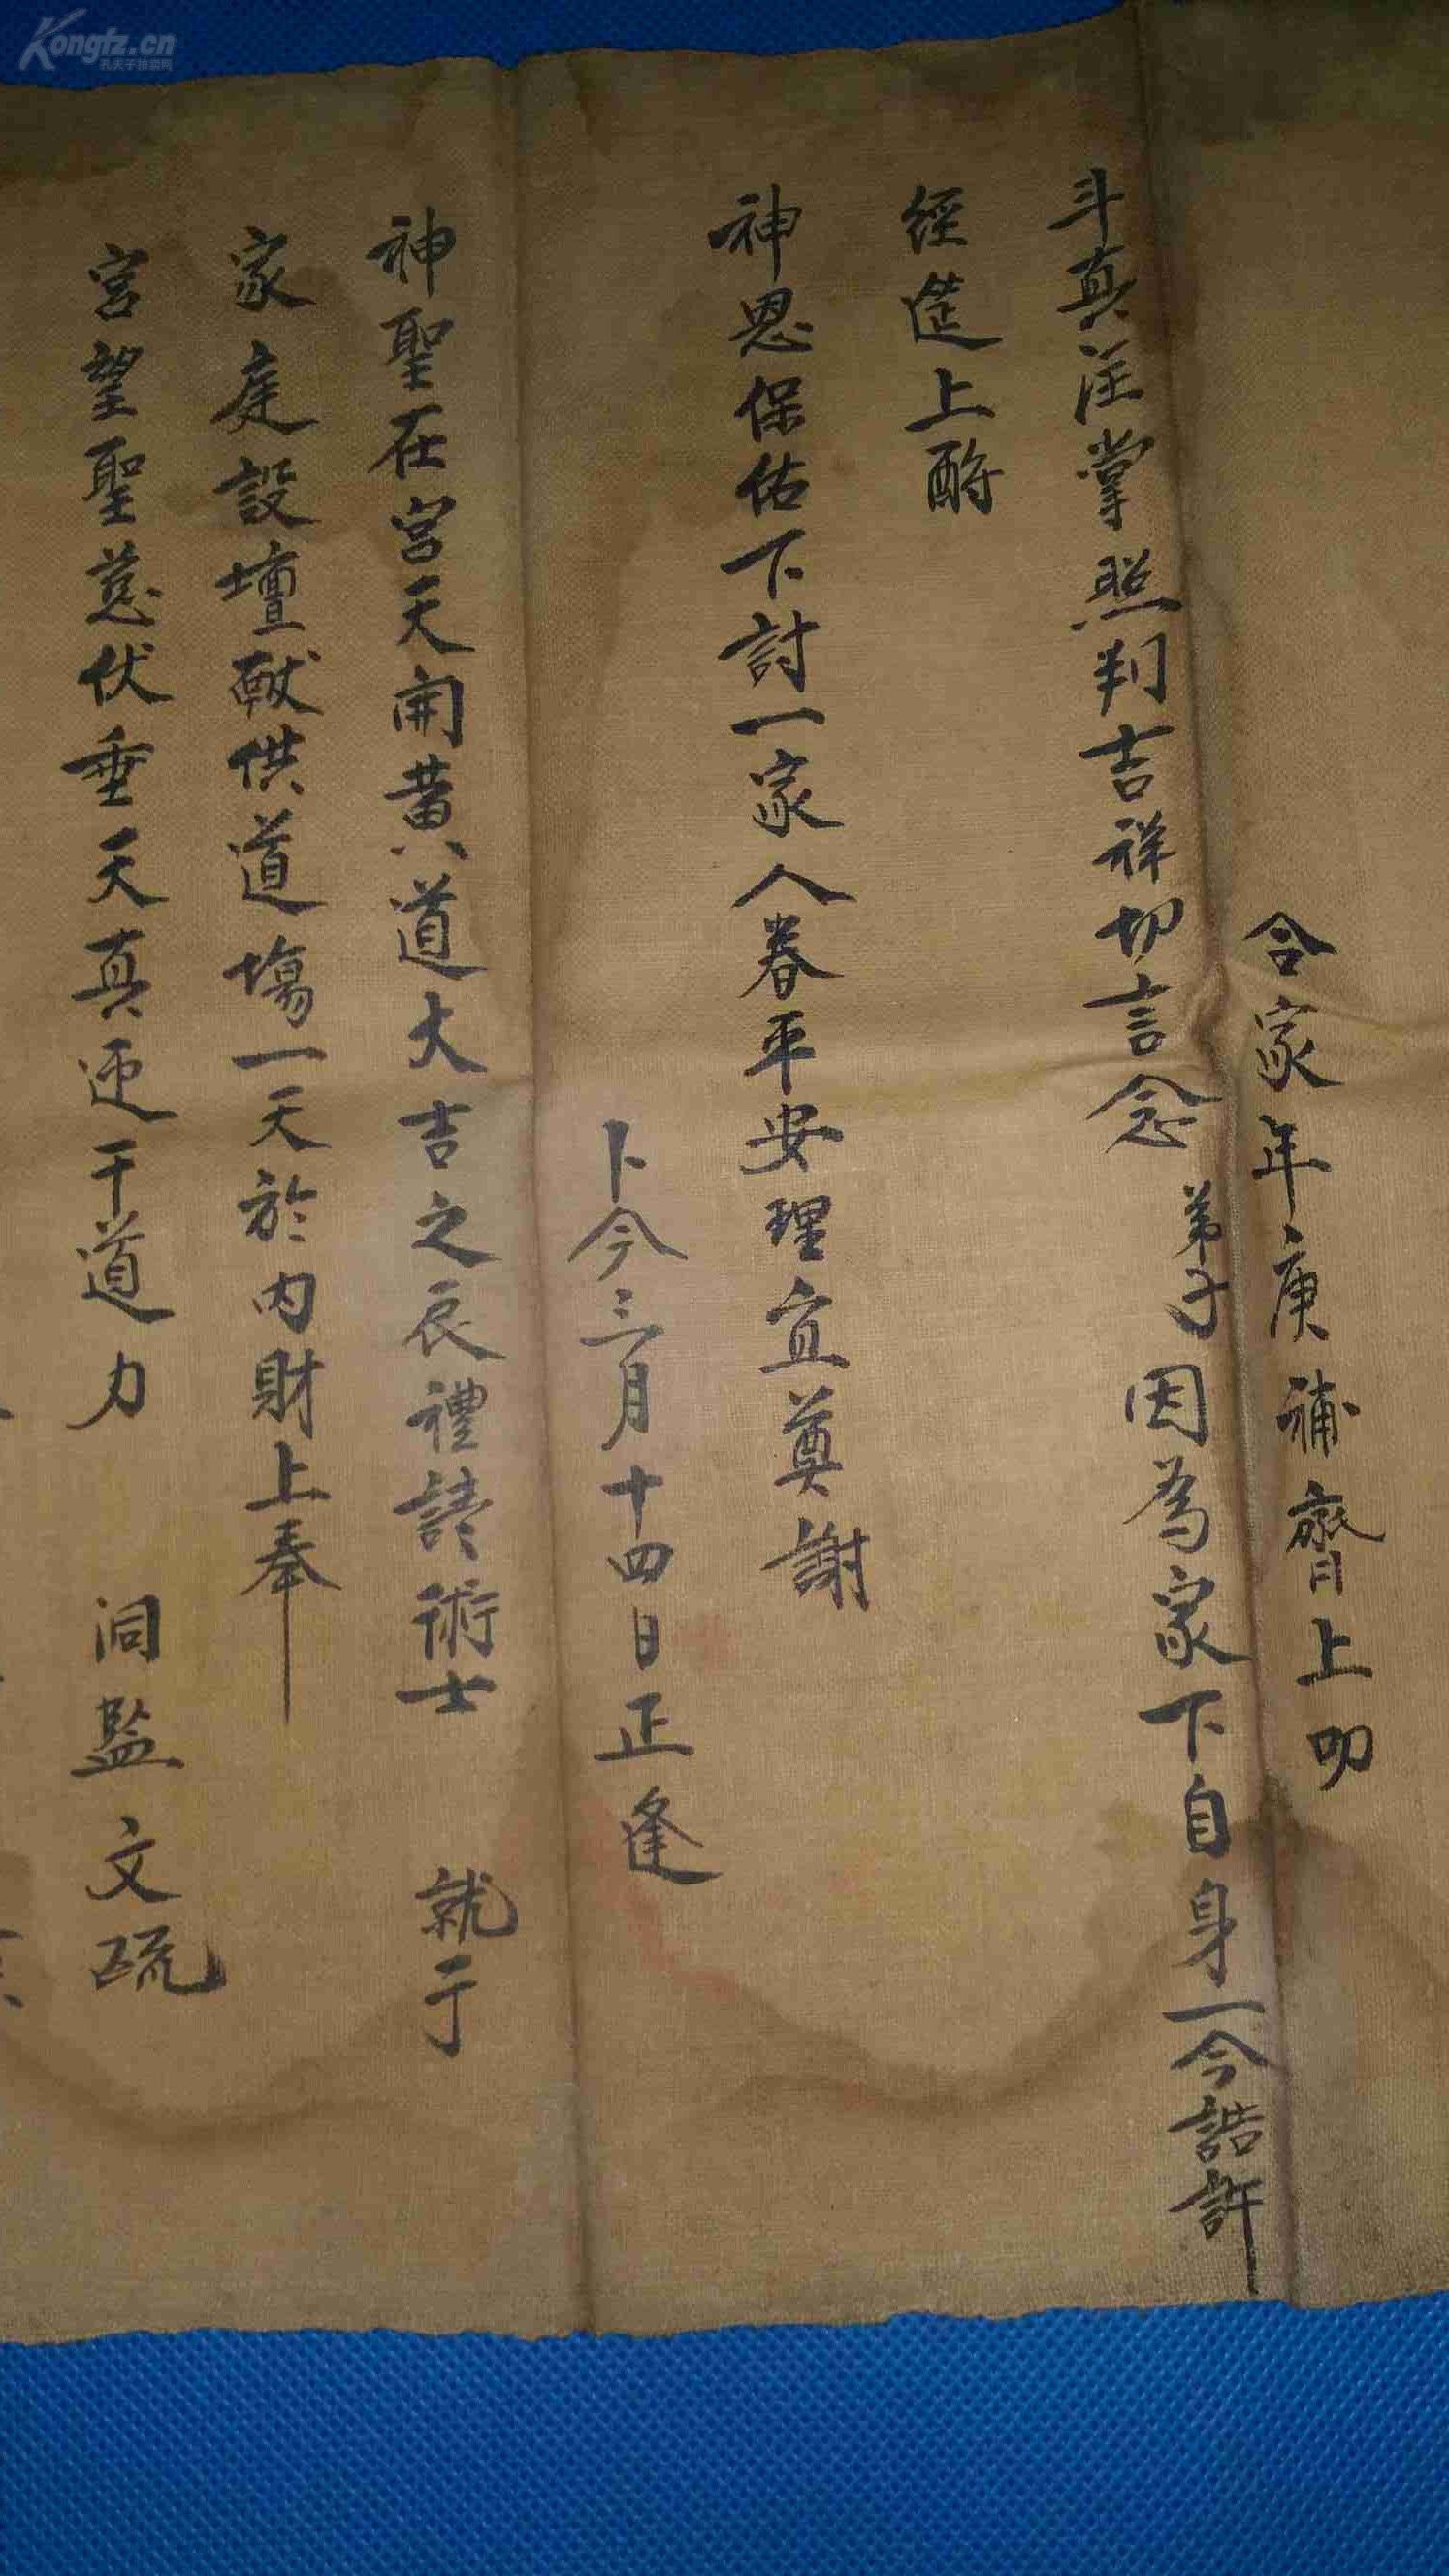 合家年庚補齊上叩
斗真注掌照判吉祥切言念 弟子 因為家下自身一今誥許
經筵上酧
神恩保佑下討一家人眷平安理宜奠謝
卜今三月十四日正逢
神聖在宮天開黄道大吉之辰禮請術士 就于
家庭設壇献供道塲一天於內財上奉
宮望聖慈伏垂天真迊干道力 洞監文硫
Kongfz.cn
孔夫子拍卖网